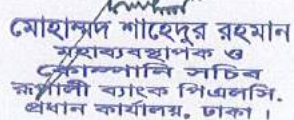 মোহাম্মদ শাহেদুর রহমান
মহাব্যবস্থাপক ও
কোম্পানি সচিব
রূপালী ব্যাংক পিএলসি.
প্রধান কার্যালয়, ঢাকা।